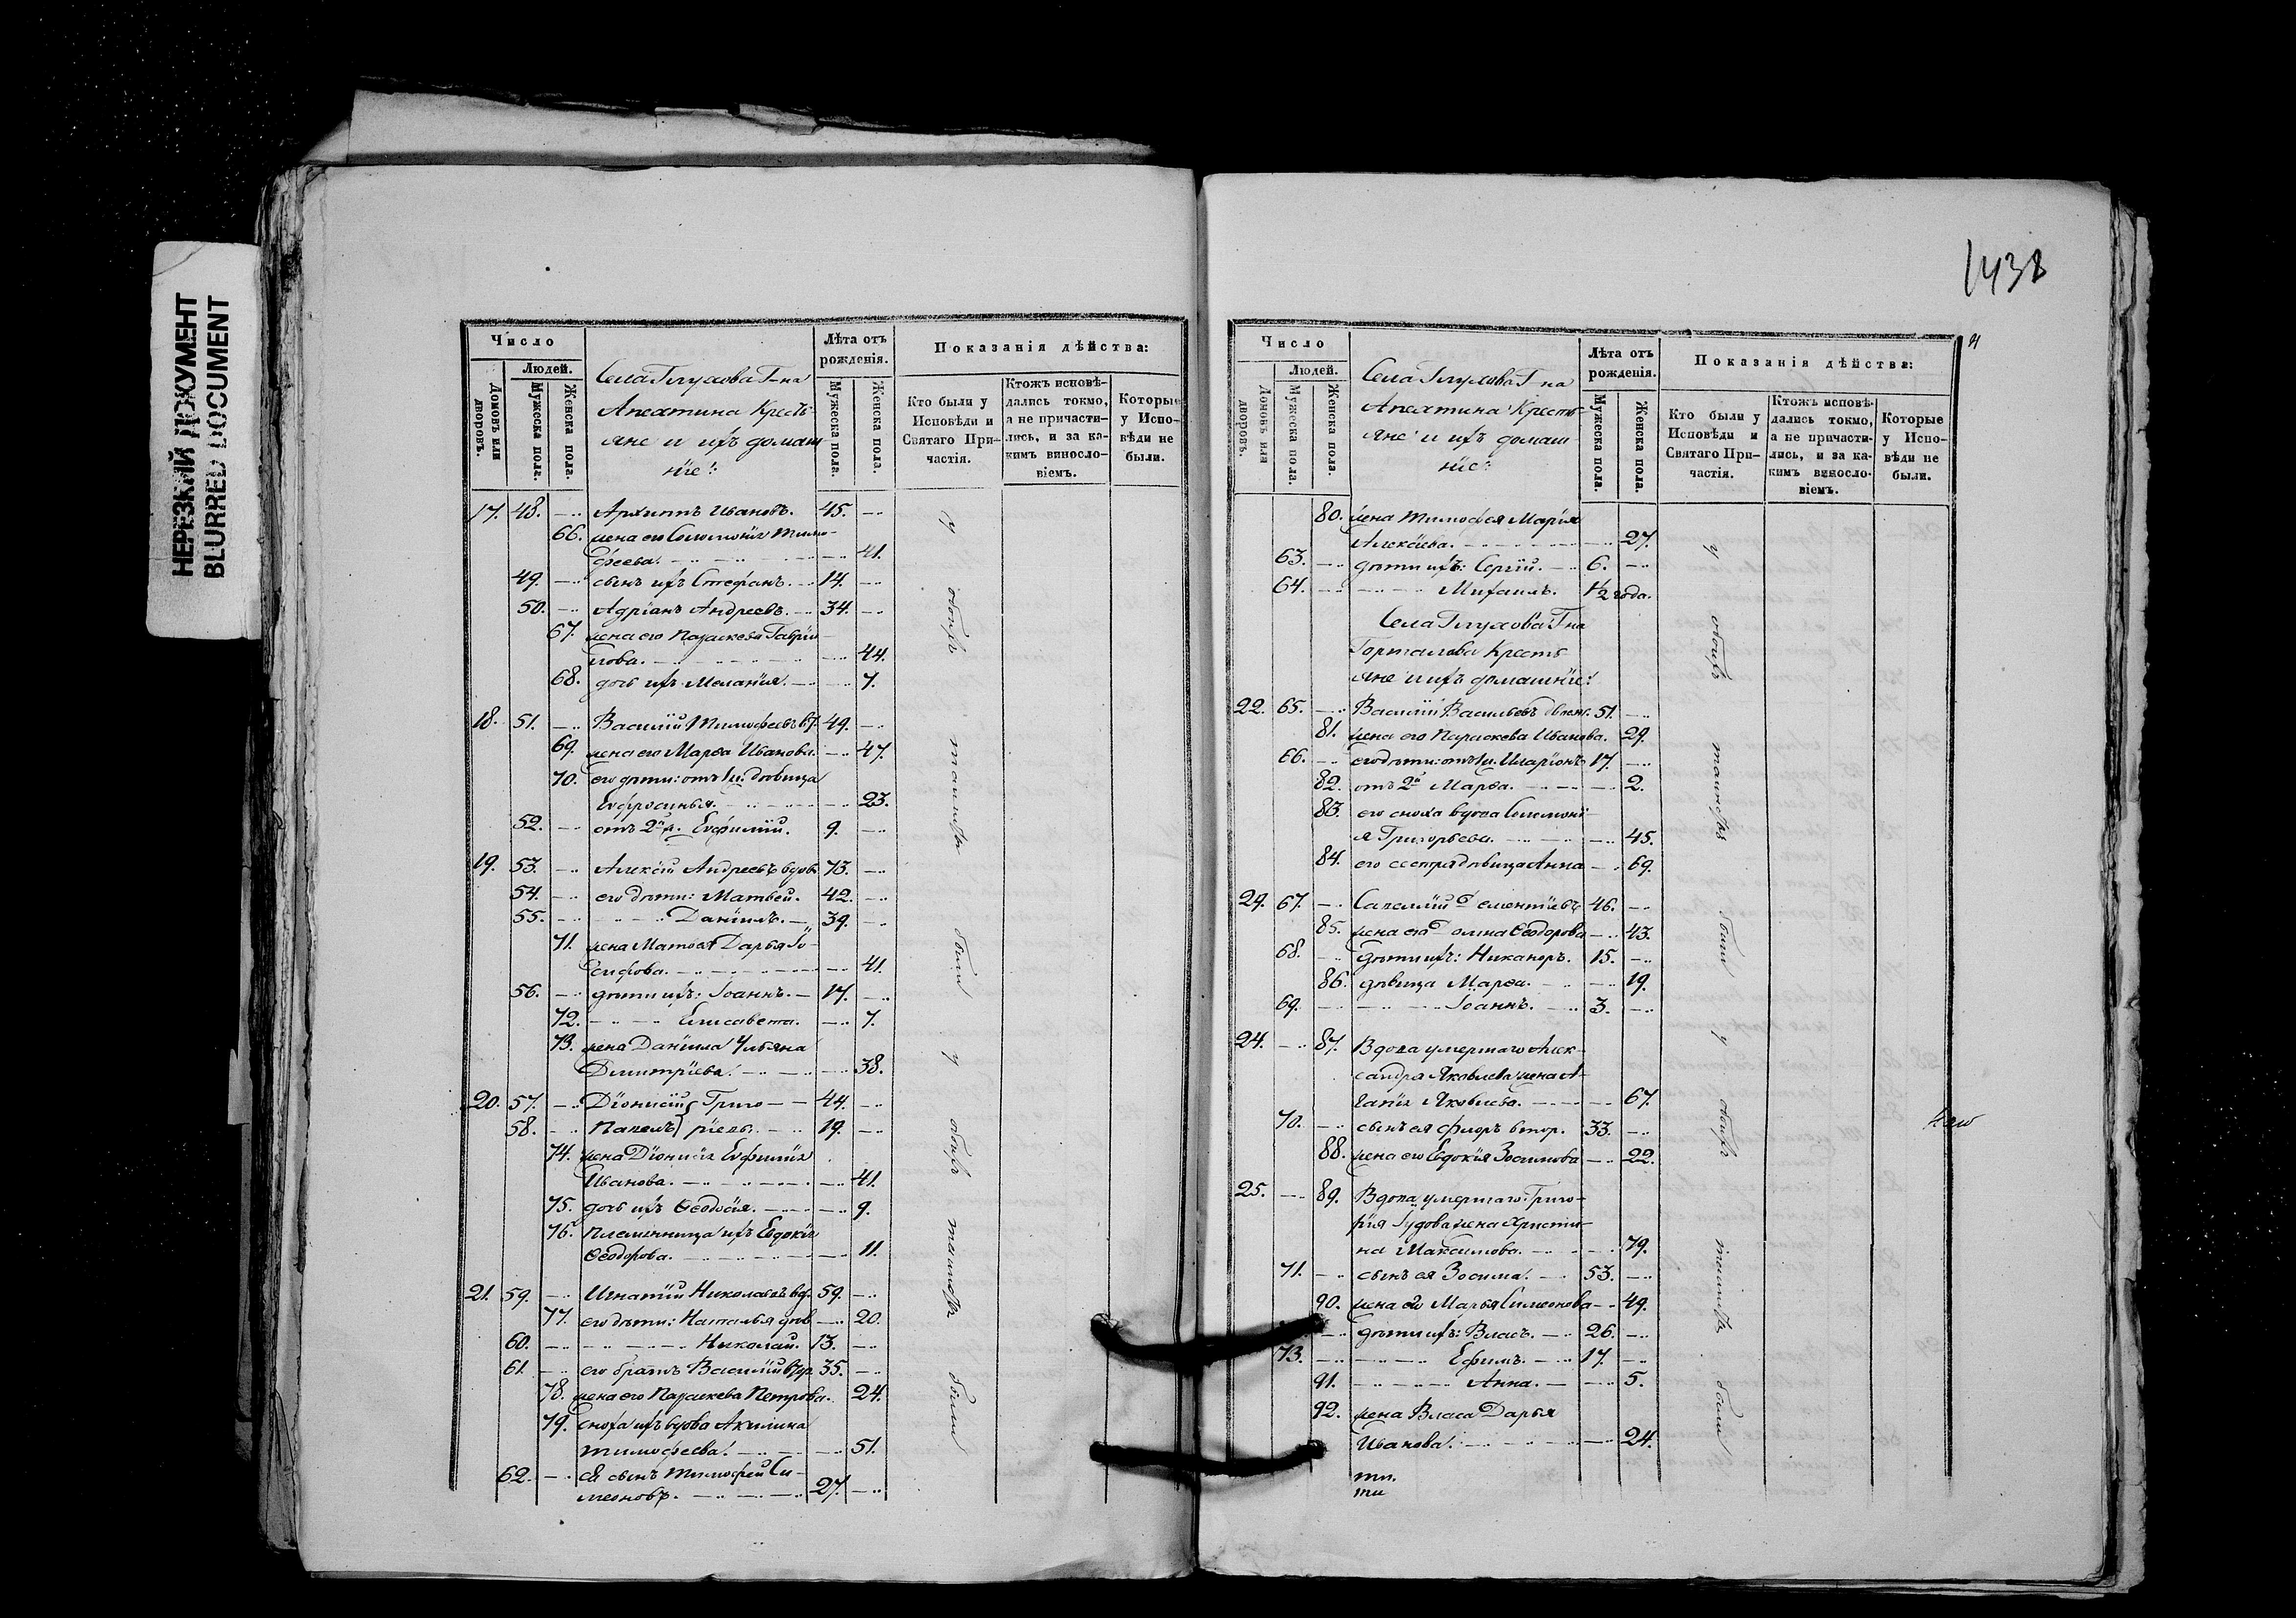 НЕРЕЗКИЙ ДОКУМЕНТ
BLURRED DOCUMENT
Число
Людей.
Домовъ или дворовъ.
Мужеска пола.
Женска пола.
Села Глухова Г-на
Апехтина Кресть-
яне и ихъ домаш
ніе:
Лѣта отъ рожденія.
Мужеска пола.
Женска пола.
Показанія дѣйства:
Кто были у Исповѣди и Святаго Причастія.
Ктожъ исповѣдались токмо, а не причастились, и за какимъ винословіемъ.
Которые у Исповѣди не были.
17. 48. Архиппъ Ивановъ. 45.
66. жена его Соломонія Тимо-
феева. 41.
49. сынъ ихъ Стефанъ. 14.
50. Адріанъ Андреевъ. 34.
67. жена его Параскева Гаврии-
лова. 44.
68. дочь ихъ Меланія. 7.
18. 51. Василій Тимофеевъ в. 49.
69. жена его Марѳа Иванова. 47.
70. его дѣти: отъ 1й: дѣвица
Евфросинья. 23.
52. отъ 2й ж. Евфимій. 9.
19. 53. Алексій Андреевъ вдов. 73.
54. его дѣти: Матвей. 42.
55. Даніилъ. 39.
71. жена Матвея Дарья Іо-
сифова. 41.
56. дѣти ихъ: Іоаннъ. 17.
72. Елисавета. 7.
73. жена Даніила Ульяна
Дмитріева. 38.
20. 57. Діонисій Григо- 44.
58. Павелъ} ріевы. 19.
74. жена Діонисія Евфимія
Иванова. 41.
75. дочь ихъ Ѳеодосія. 9.
76. племянница ихъ Евдокія
Ѳеодорова. 11.
21. 59. Игнатій Николаевъ вд. 59.
77. его дѣти: Наталья дѣв 20.
60. Николай. 13.
61. его братъ Василій втор 35.
78. жена его Параскева Петрова. 24.
79. сноха ихъ вдова Акилина
Тимофеева. 51.
62. ея сынъ Тимофей Си-
меоновъ. 27.
у
обоихъ
таинствъ
были
у
обоихъ
таинствъ
были
1438
Число
Людей.
Домовъ или дворовъ.
Мужеска пола.
Женска пола.
Села Глухова Г на
Апехтина Кресть-
яне и ихъ домаш
ніе:
Лѣта отъ рожденія.
Мужеска пола.
Женска пола.
Показанія дѣйства:
Кто были у Исповѣди и Святаго Причастія.
Ктожъ исповѣдались токмо, а не причастились, и за какимъ винословіемъ.
Которые у Исповѣди не были.
80. жена Тимофея Марія
Алексіева. 27.
63. дѣти ихъ: Сергій. 6.
64. Михаилъ. 1/2 года.
Села Глухова Г на
Горталова Кресть
яне и ихъ домашніе:
22. 65. Василій Васильевъ двоеж. 51.
81. жена его Параскева Иванова. 29.
66. его дѣти: отъ 1й. Иларіонъ 17.
82. отъ 2й Марѳа. 2.
83. его сноха вдова Соломоні-
я Григорьева. 45.
84. его сестра дѣвица Анна 69.
29. 67. Савелій Дементіевъ 46.
85. жена его Домна Ѳеодорова 43.
68. дѣти ихъ: Никаноръ. 15.
86. дѣвица Марѳа. 19.
69. Іоаннъ. 3.
24. 87. Вдова умершаго Алек-
сандра Яковлева жена А-
гапія Яковлева. 67.
70. сынъ ея Флоръ втор. 33.
88. жена его Евдокія Зосимова 22.
25. 89. Вдова умершаго Григо-
рія Іудова жена Христи-
на Максимова. 79.
71. сынъ ея Зосима. 53.
90. жена его Марья Симеонова 49.
дѣти ихъ: Власъ. 26.
73. Ефимъ. 17.
91. Анна. 5.
92. жена Власа Дарья
Иванова. 24.
ти.
ти
у
обоихъ
таинствъ
были
у
обоихъ
таинствъ
были